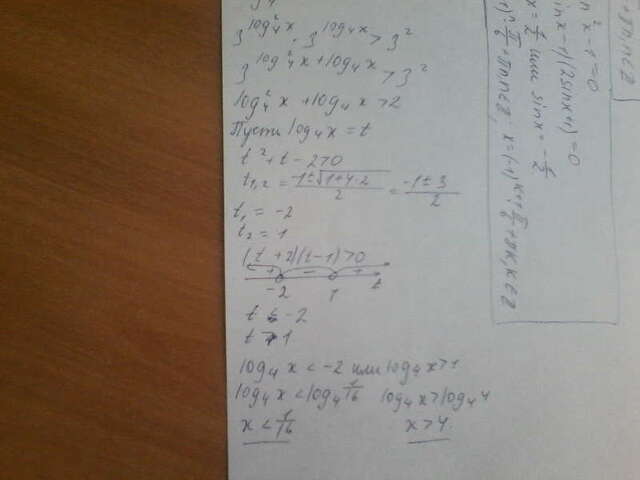 3^{log₄²x} · 3^{log₄x} > 3²
3^{log₄²x + log₄x} > 3²
log₄²x + log₄x > 2
Пусть log₄x = t
t² + t - 2 > 0
t₁,₂ = (-1 ± √(1+4·2))/2 = (-1 ± 3)/2
t₁ = -2
t₂ = 1
(t + 2)(t - 1) > 0
+ - +
-2 1 t
t < -2
t > 1
log₄x < -2 или log₄x > 1
log₄x < log₄ 1/16 log₄x > log₄4
x < 1/16 x > 4.
n²x - 1 = 0
sinx - 1)(2sinx + 1) = 0
x = 1/2 или sinx = -1/2